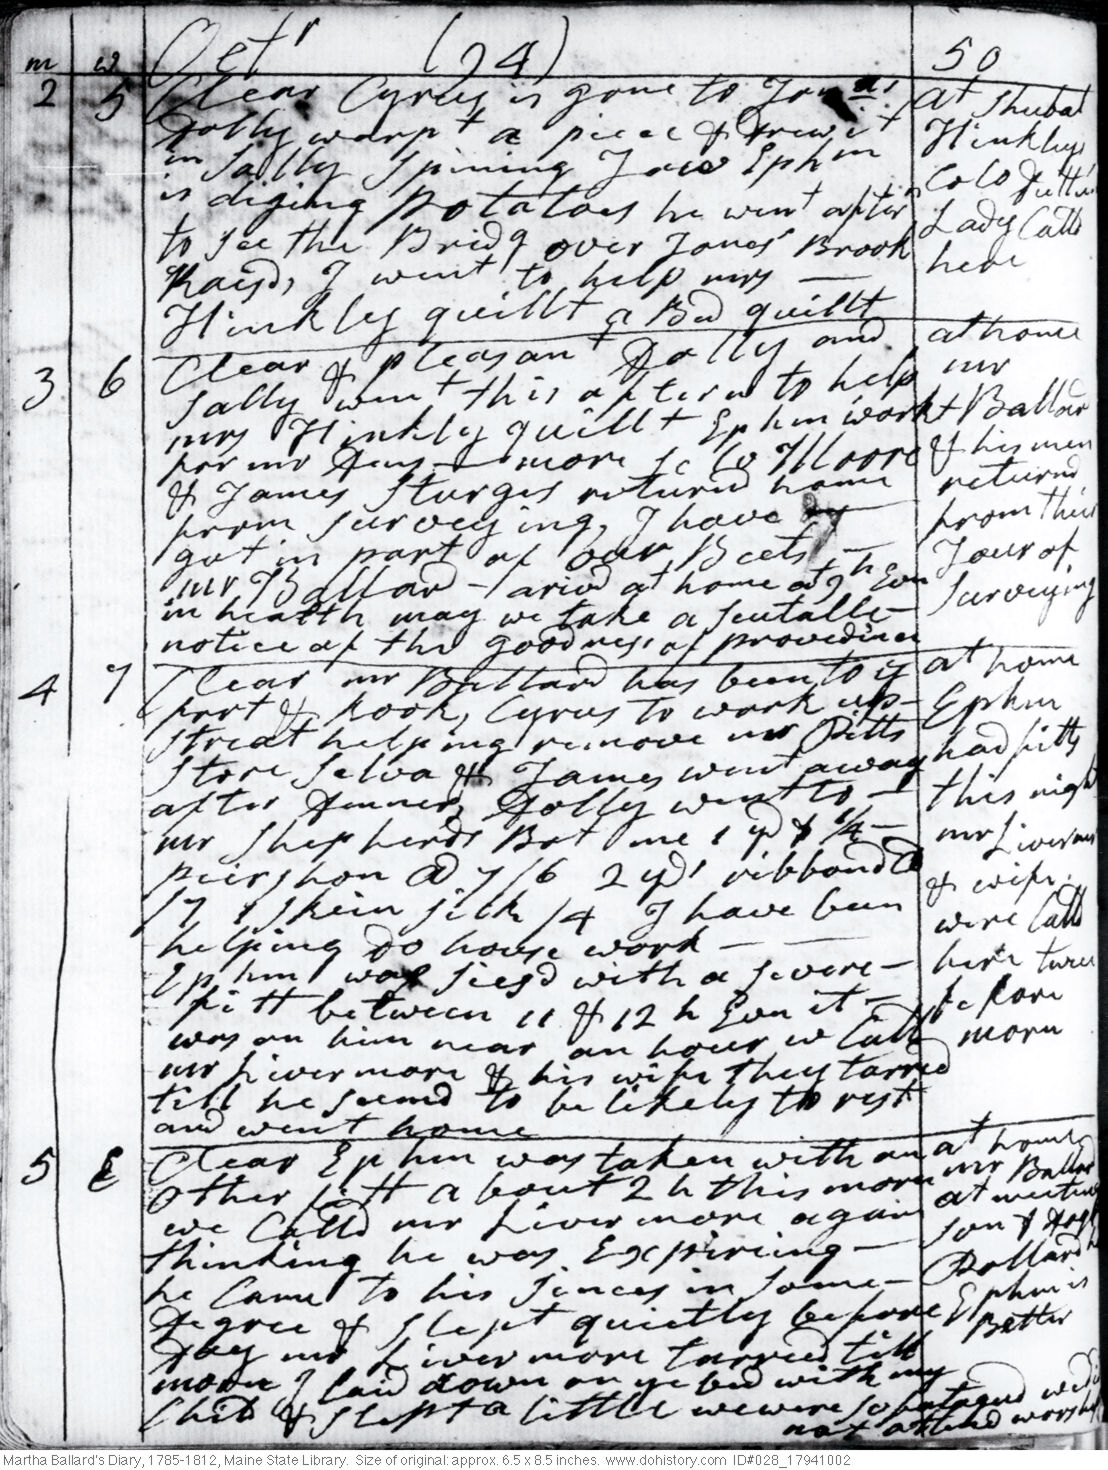 m w Oct r (94) 50
2 5 Clear Cyrus is gone to Jonas
Dolly warpt a piece & Drew it
in Sally Spining Tow Ephm
is diging Potatoes he went aftern
to see the Bridg over Jones' Brook
Raisd, I went to help mrs —
Hinkly quillt a Bed quillt
at Shubal
Hinklys
Colo
Lady Calld
here
3 6 Clear & pleasant Dolly and
Sally went this aftern to help
mrs Hinkly quillt Ephm workt
for mr Dens— more Moore
& James Sturges returnd home
from surveying, I have
got in part of our Beets —
mr Ballard — arivd at home at 9 h Evn
in health may we take a seutable—
notice of the goodness of providince
at home
mr
Ballard
& his men
returnd
from their
Tour of
Surveying
4 7 Clear mr Ballard has been to ye
fort & hook, Cyrus to work up—
street helping remove mr Pitts
store Selva & James went away
after dinner, Dolly went to —
mr Shepherds Bot me 1 yd & 1/4 —
peirshon @ 7/6 2 yds ribbond @
/7 1 skein silk /4 I have been
helping do house work — —
Ephm was siesd with a severe—
fitt between 11 & 12 h Evn it —
was on him near an hour w Calld
mr Livermore & his wife they tarred
till he seemd to be likely to rest
and went home
at home
Ephm
had fitts
this night
mr Livermore
& wife
were Calld
here twice
before
morn
5 E Clear Ephm was taken with an
other fitt about 2 h this morn
we Calld mr Livermore again
thinking he was Expireing —
he Came to his sinces in some—
Degree & slept quietly before
Day mr Livermore tarried till
morn I laid down on ye bed with my
Child & slept a little we were so fatagud we did
not attend worship
at home
mr Ballard
at meeting
son &
Pollard
Ephm is
Better
Martha Ballard's Diary, 1785-1812, Maine State Library. Size of original: approx. 6.5 x 8.5 inches. www.dohistory.com ID#028_17941002